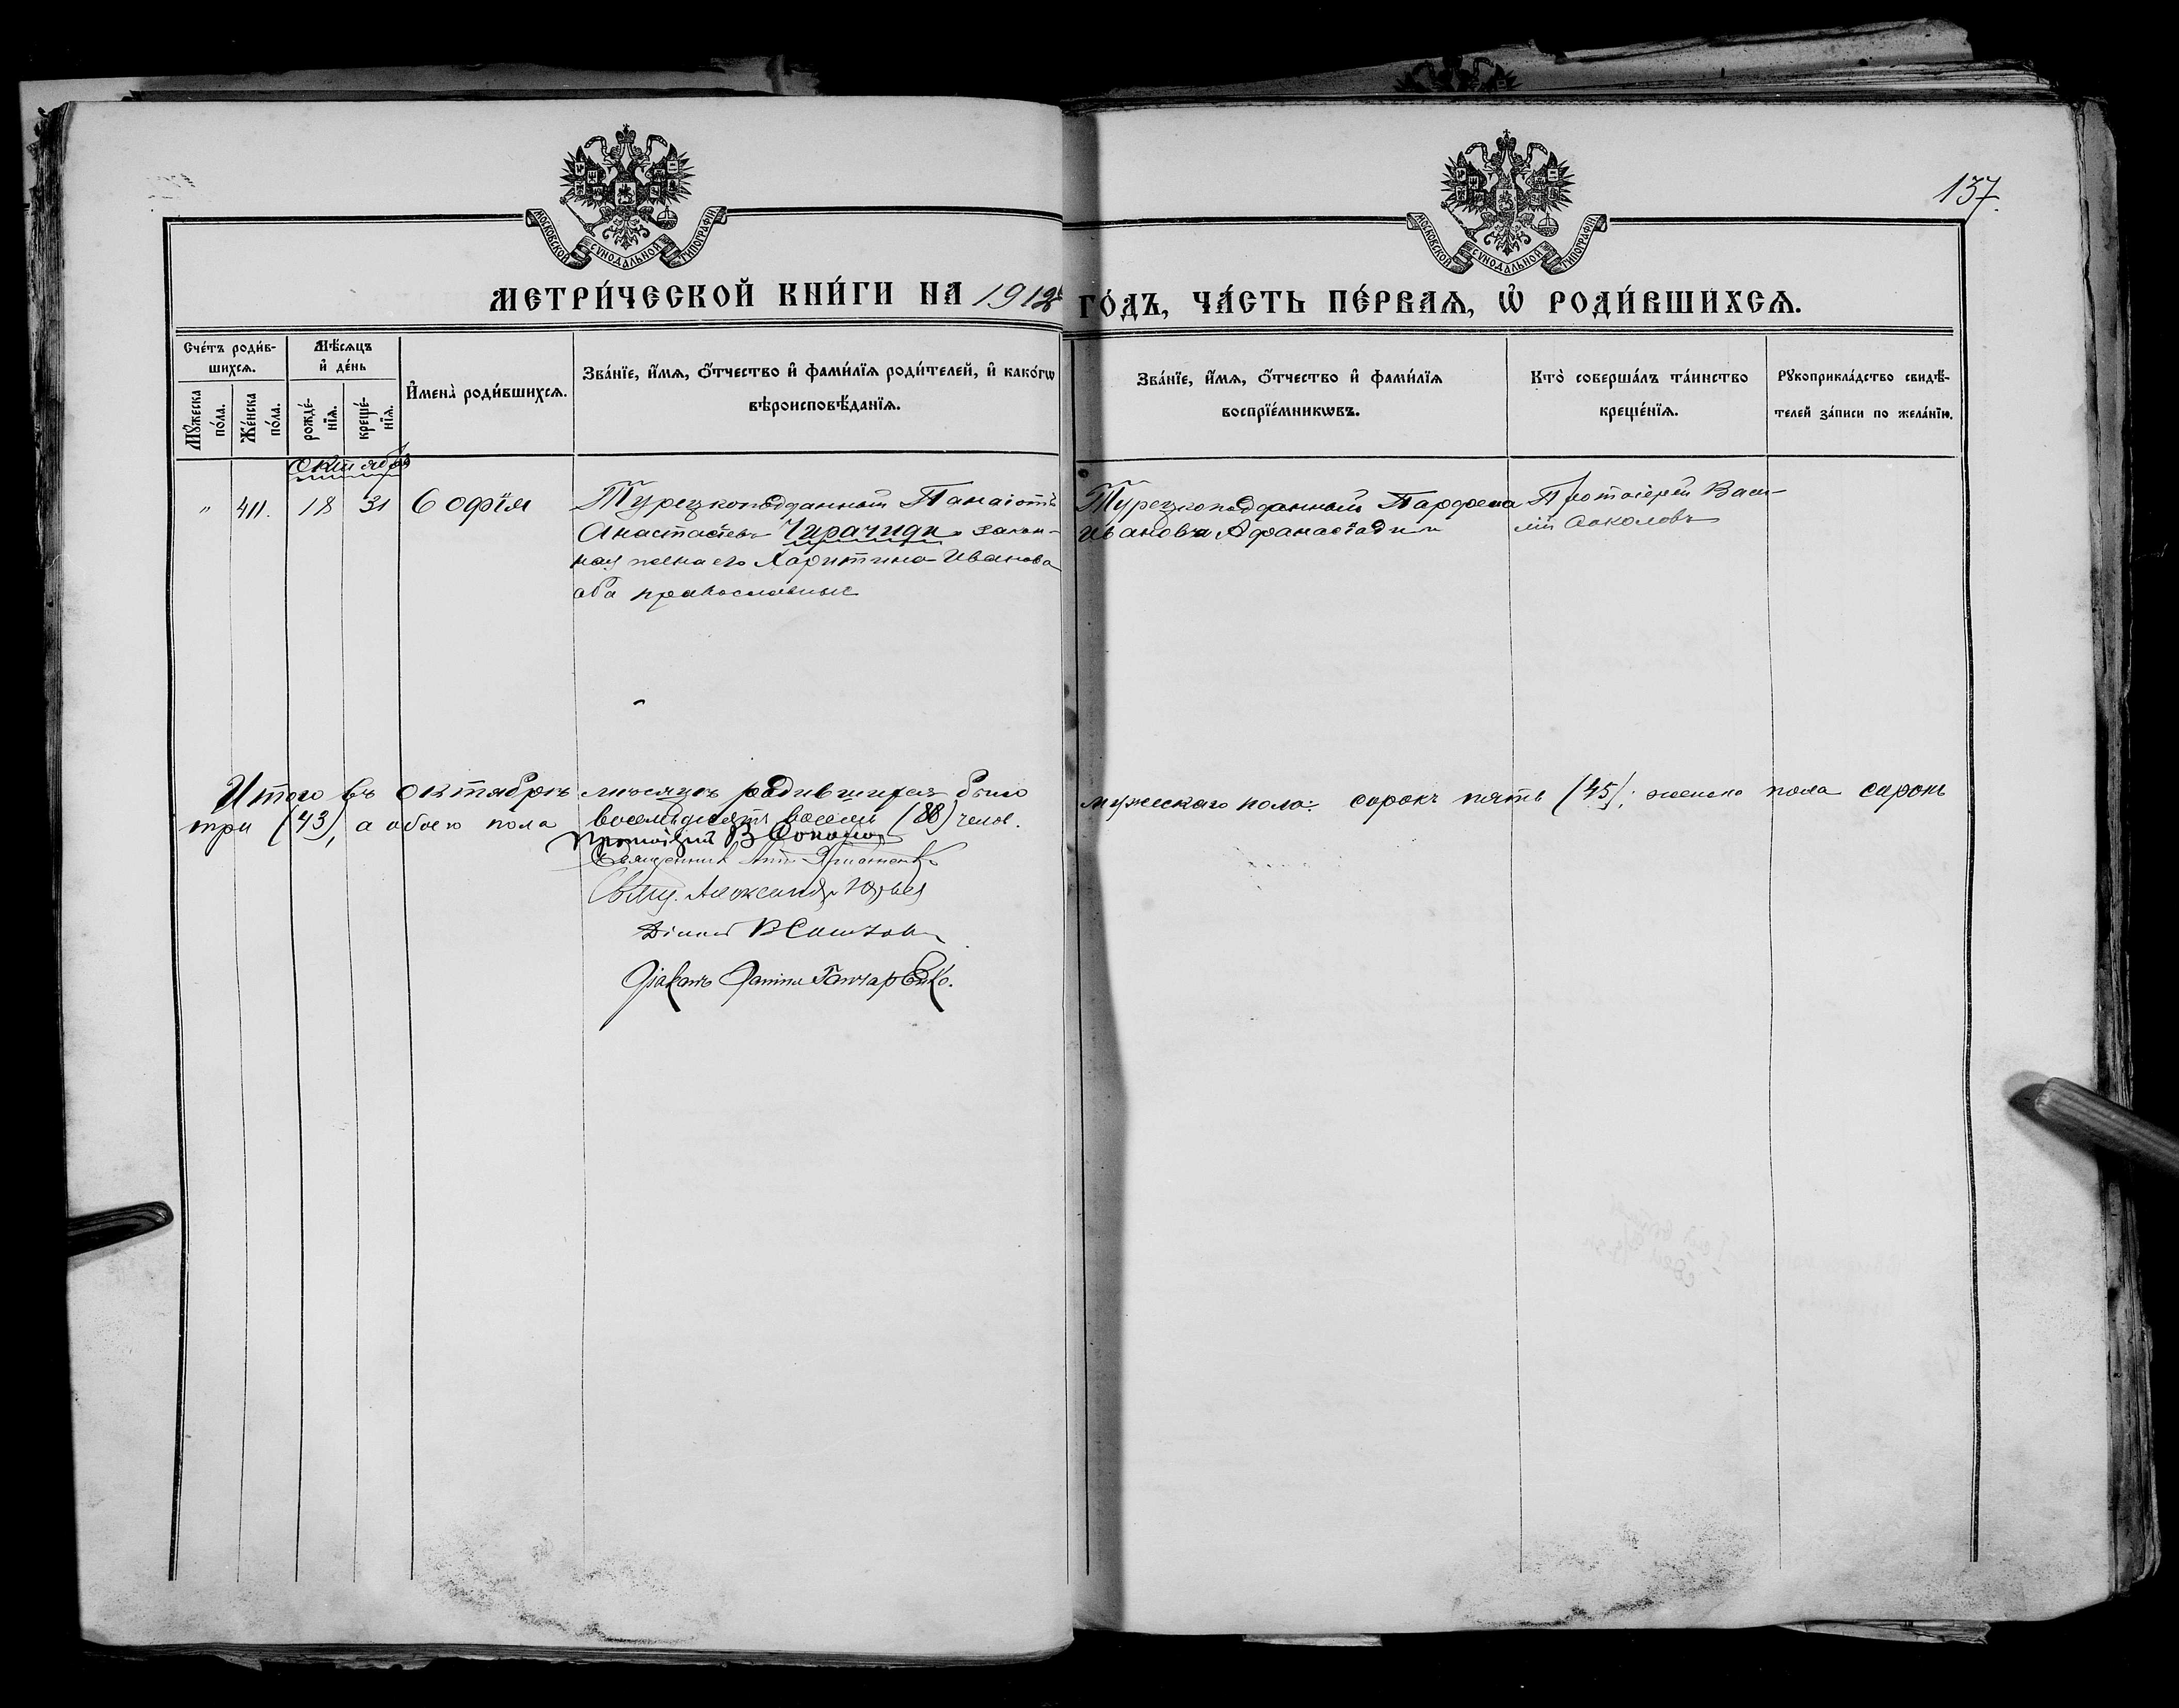 137.
МОСКОВСКОЙ СѴНОДАЛЬНОЙ ТИПОГРАФІИ
МОСКОВСКОЙ СѴНОДАЛЬНОЙ ТИПОГРАФІИ
МЕТРИ́ЧЕСКОЙ КНИ́ГИ НА 1912 ГО́ДЪ, ЧА́СТЬ ПЕ́РВАѦ, Ѡ҆ РОДИ́ВШИХСѦ.
Сче́тъ роди́вшихсѧ.
Мꙋ́жеска по́ла.
Же́нска по́ла.
Мѣ́сѧцъ и҆ де́нь
рожде́нїѧ.
креще́нїѧ.
И҆мена̀ роди́вшихсѧ.
Зва́нїе, и҆́мѧ, ѻ҆́тчество и҆ фами́лїѧ роди́телей, и҆ како́гѡ
вѣроисповѣ́данїѧ.
Зва́нїе, и҆́мѧ, ѻ҆́тчество и҆ фами́лїѧ
воспрїе́мникѡвъ.
Кто̀ соверша́лъ та́инство
креще́нїѧ.
Рꙋкоприкла́дство свидѣ́-
телей за́писи по жела́нїю.
Октября
" 411. 18 31 Софія
Турецкоподданный Панаіотъ
Анастасіевъ Чирачиди закон-
ная жена его Харитина Иванова
оба православные
Турецкоподданный Парфена
Иванова Афанасіади
Протоіерей Васи-
лій Соколовъ
Итого въ октябрѣ мѣсяцѣ родившихся было мужескаго пола: сорокъ пять (45); женска пола сорокъ
три (43), а обоего пола восемьдесятъ восемь (88) челов.
Протоіерей В Соколовъ
Священник
Свящ. Александр Юрьев
Діаконъ
Діаконъ Гончаренко.